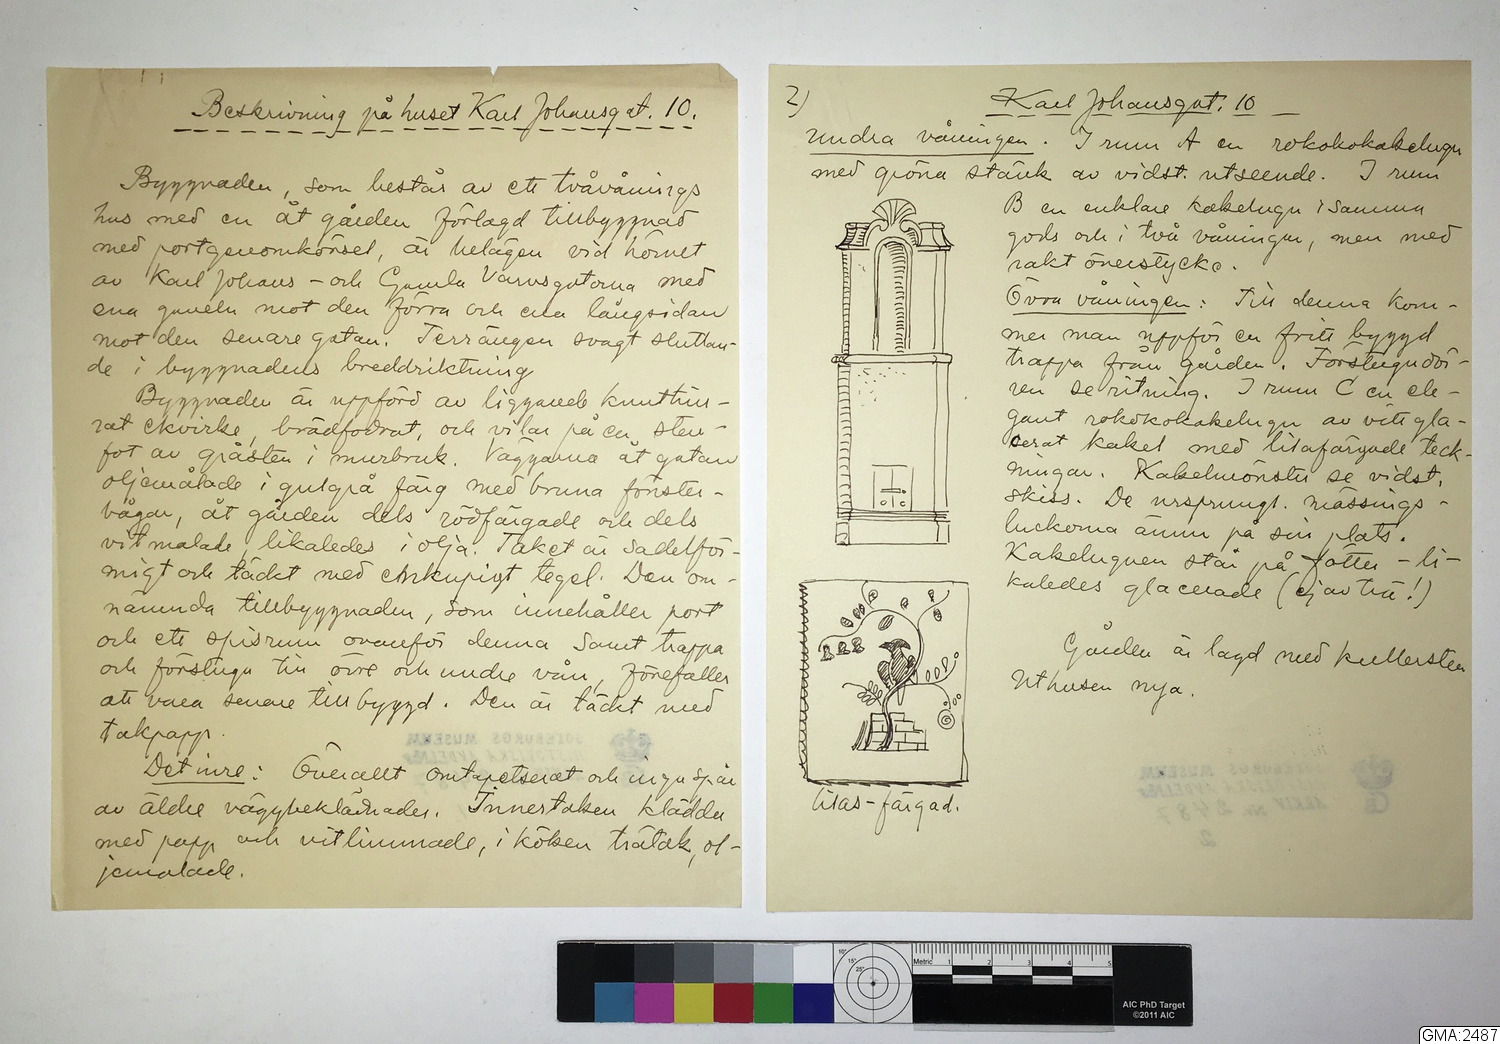 Beskrivning på huset Karl Johansgat. 10.
Byggnaden, som består av ett tvåvånings
hus med en åt gården förlagd tillbyggnad
med portgenomkörsel, är belägen vid hörnet
av Karl Johans- och Gamla Varvsgatorna med
ena gaveln mot den förra och ena långsidan
mot den senare gatan. Terrängen svagt sluttan-
de i byggnadens breddriktning
Byggnaden är uppförd av liggande knuttim-
rat ekvirke, brädfodrat, och vilar på en sten-
fot av gråsten i murbruk. Väggarna åt gatan
oljemålade i gulgrå färg med bruna fönster-
bågar, åt gården dels rödfärgade och dels
vitmålade, likaledes i olja. Taket är sadelfor-
migt och täckt med enkupigt tegel. Den om-
nämnda tillbyggnaden, som innehåller port
och ett spisrum ovanför denna samt trappa
och förstuga till övre och undre vån, förefaller
att vara senare tillbyggd. Den är täckt med
takpapp.
Det inre: Överallt omtapetserat och inga spår
av äldre väggbeklädnader. Innertaken klädda
med papp och vitlimmade, i köken trätak, ol-
jemålade.
2)
Karl Johansgat. 10
Undra våningen. I rum A en rokokokakelugn
med gröna stänk av vidst. utseende. I rum
B en enklare kakelugn i samma
gods och i två våningar, men med
rakt överstycke.
Övra våningen: Till denna kom-
mer man uppför en fritt byggd
trappa från gården. Förstugudör-
ren se ritning. I rum C en ele-
gant rokokokakelugn av vitt gla-
serat kakel med lilafärgade teck-
ningar. Kakelmönster se vidst.
skiss. De ursprungl. mässings-
luckorna ännu på sin plats.
Kakelugnen står på fötter - li-
kaledes glacerade (ej av trä!)
Gården är lagd med kullersten
Uthusen nya.
lilas-färgad.
Metric 1 2 3 4 5
10°
15°
25°
AIC PhD Target
©2011 AIC
GMA:2487